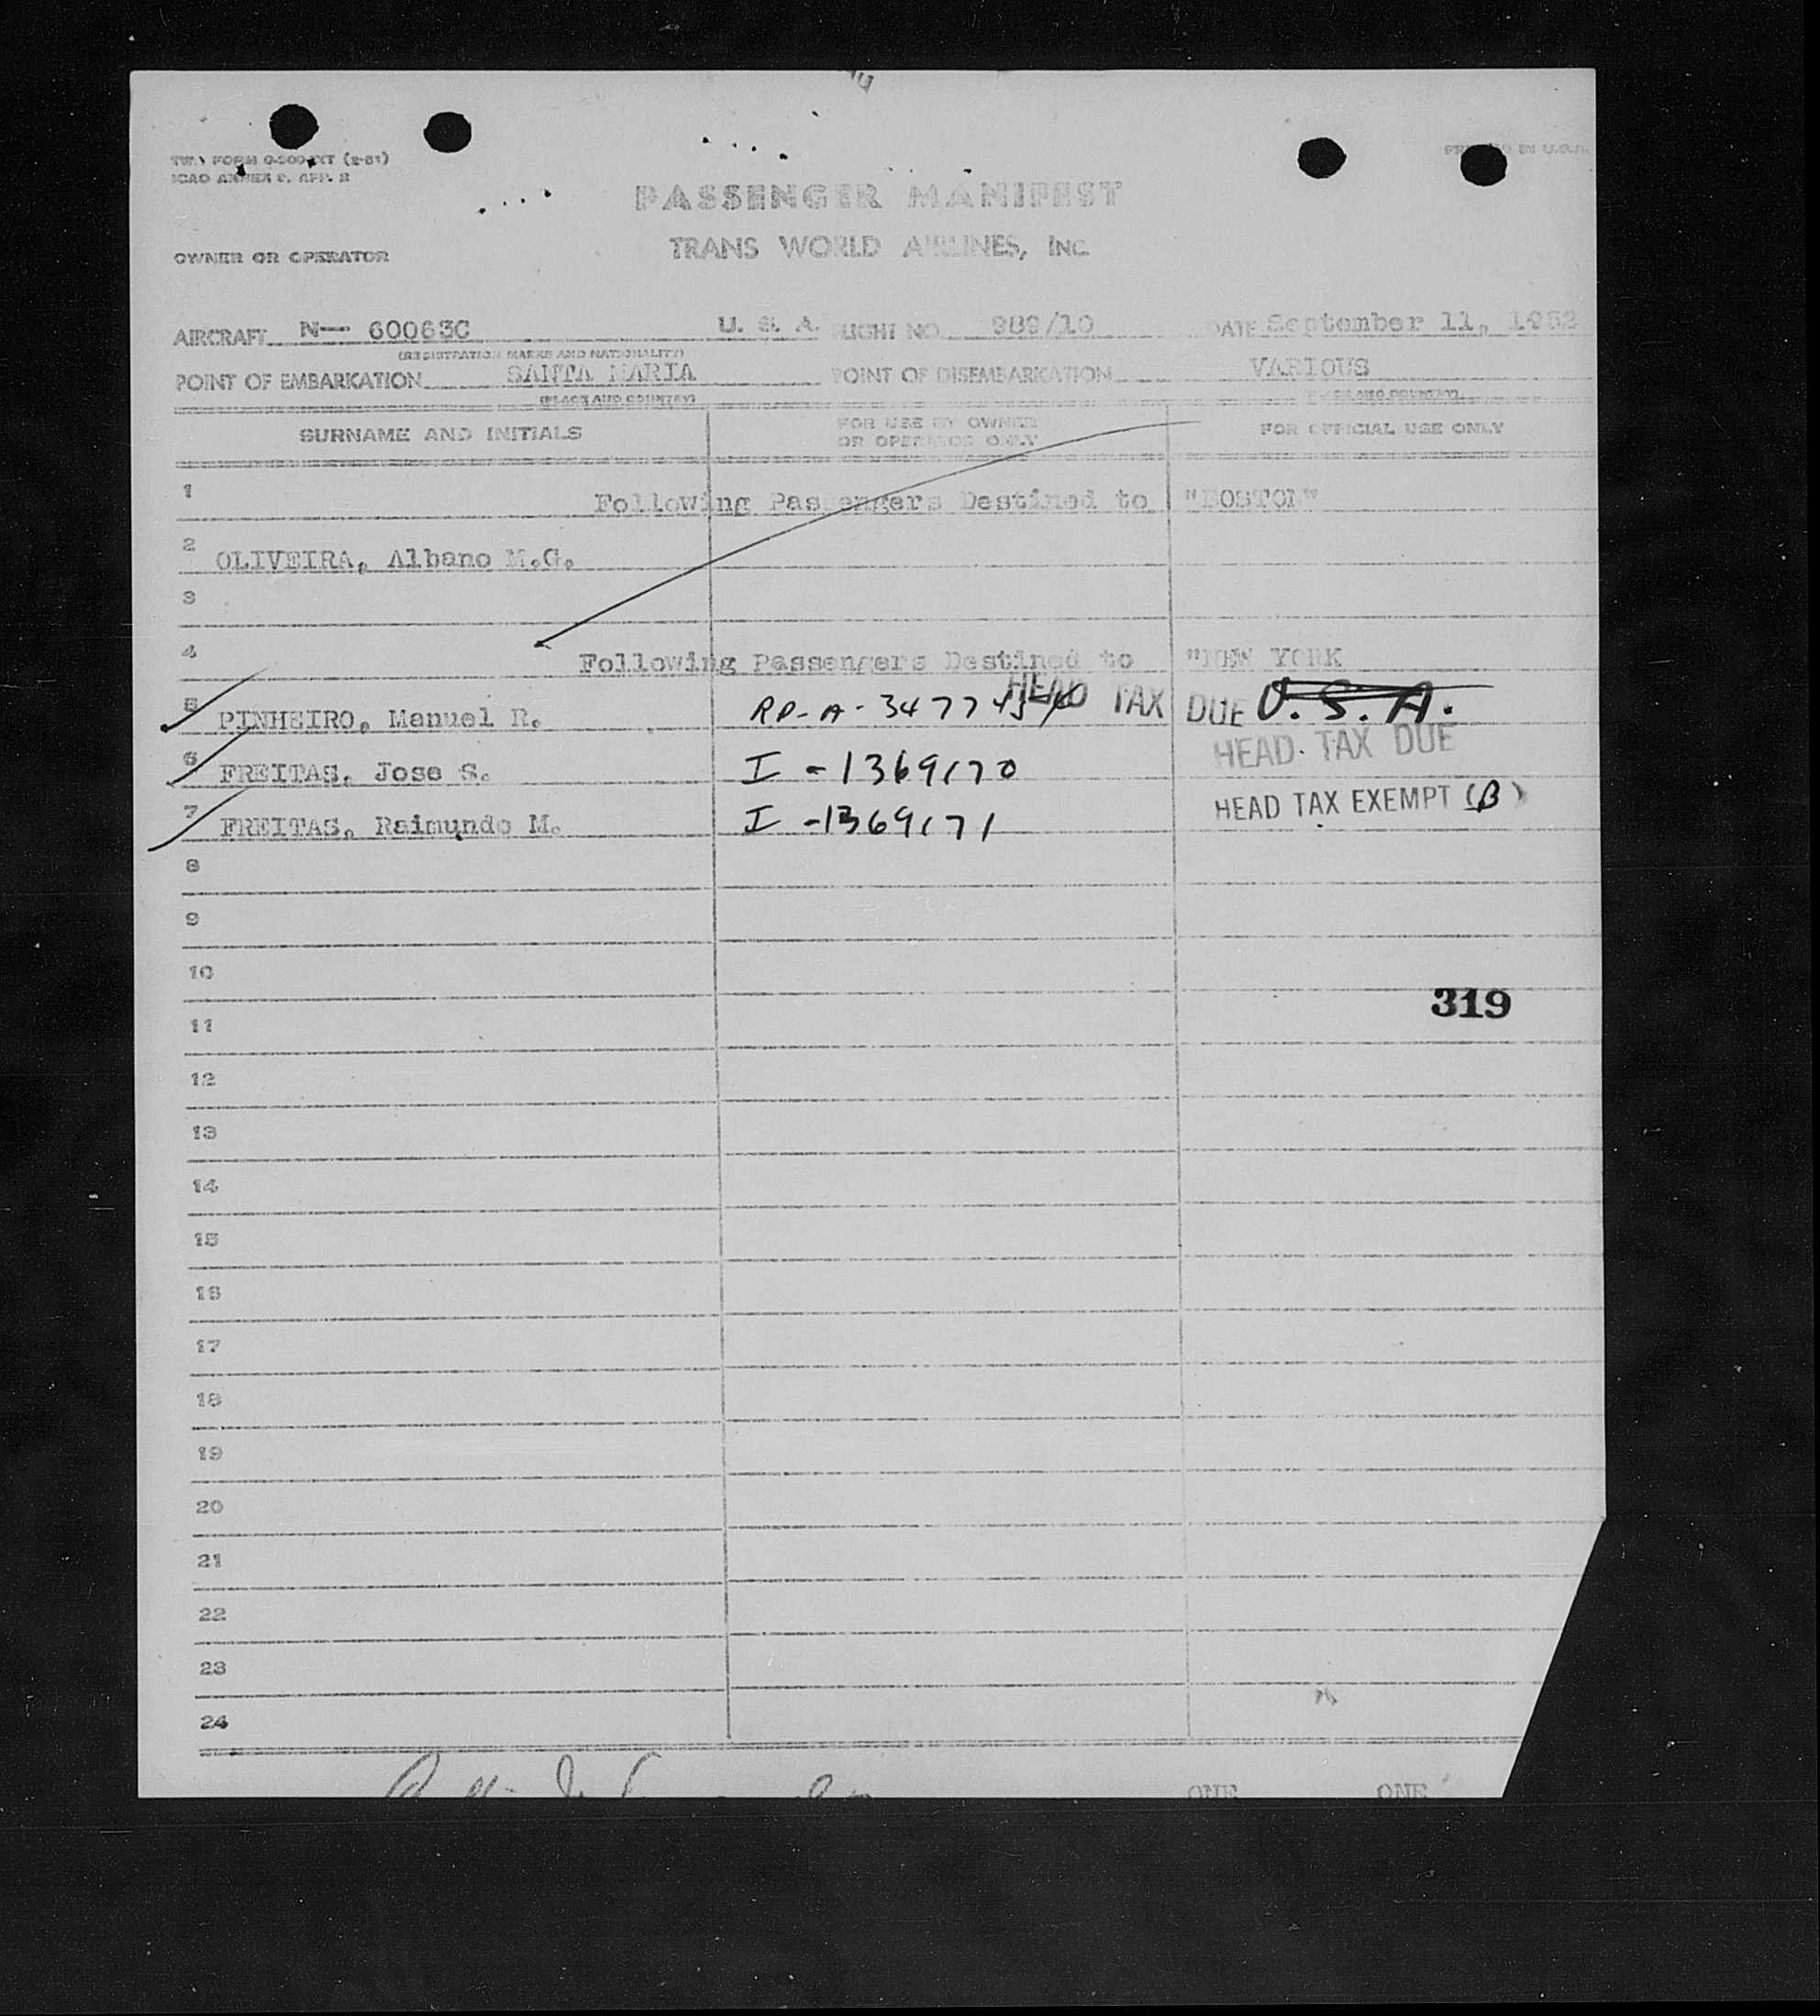 TWA FORM O-500-IXT (2-51)
ICAO ANNEX 9, APP. 2
PRINTED IN U.S.A.
PASSENGER MANIFEST
OWNER OR OPERATOR
TRANS WORLD AIRLINES, INC.
AIRCRAFT N— 60063C U. S. A. FLIGHT NO. 989/10 DATE September 11, 1952
(REGISTRATION MARKS AND NATIONALITY)
POINT OF EMBARKATION SANTA MARIA POINT OF DISEMBARKATION VARIOUS
(PLACE AND COUNTRY) (PLACE AND COUNTRY)
SURNAME AND INITIALS FOR USE BY OWNER OR OPERATOR ONLY FOR OFFICIAL USE ONLY
1 Following Passengers Destined to "BOSTON"
2 OLIVEIRA, Albano M.G.
3
4 Following Passengers Destined to "NEW YORK
5 PINHEIRO, Manuel R. RP-A-347745 HEAD TAX DUE U.S.A.
6 FREITAS, Jose S. I-1369170 HEAD TAX DUE
7 FREITAS, Raimundo M. I-1369171 HEAD TAX EXEMPT (B)
8
9
10
319
11
12
13
14
15
16
17
18
19
20
21
22
23
24
ONE ONE